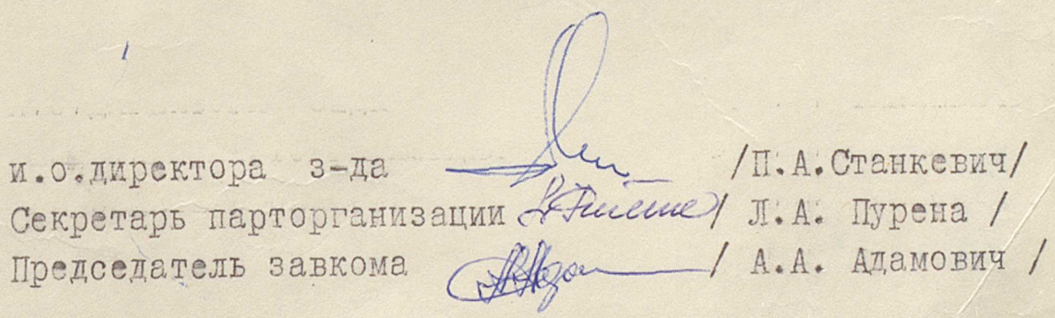 и.о.директора з-да /П.А.Станкевич/
Секретарь парторганизации / Л.А. Пурена /
Председатель завкома / А.А. Адамович /